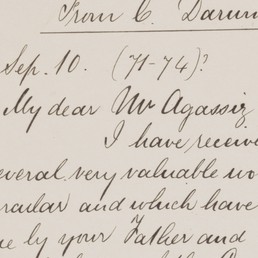 From C. Darwin
Sep. 10. (71-74)?
My dear Mr Agassiz
I have receive
several very valuable wo
radar and which have
e by your Father and